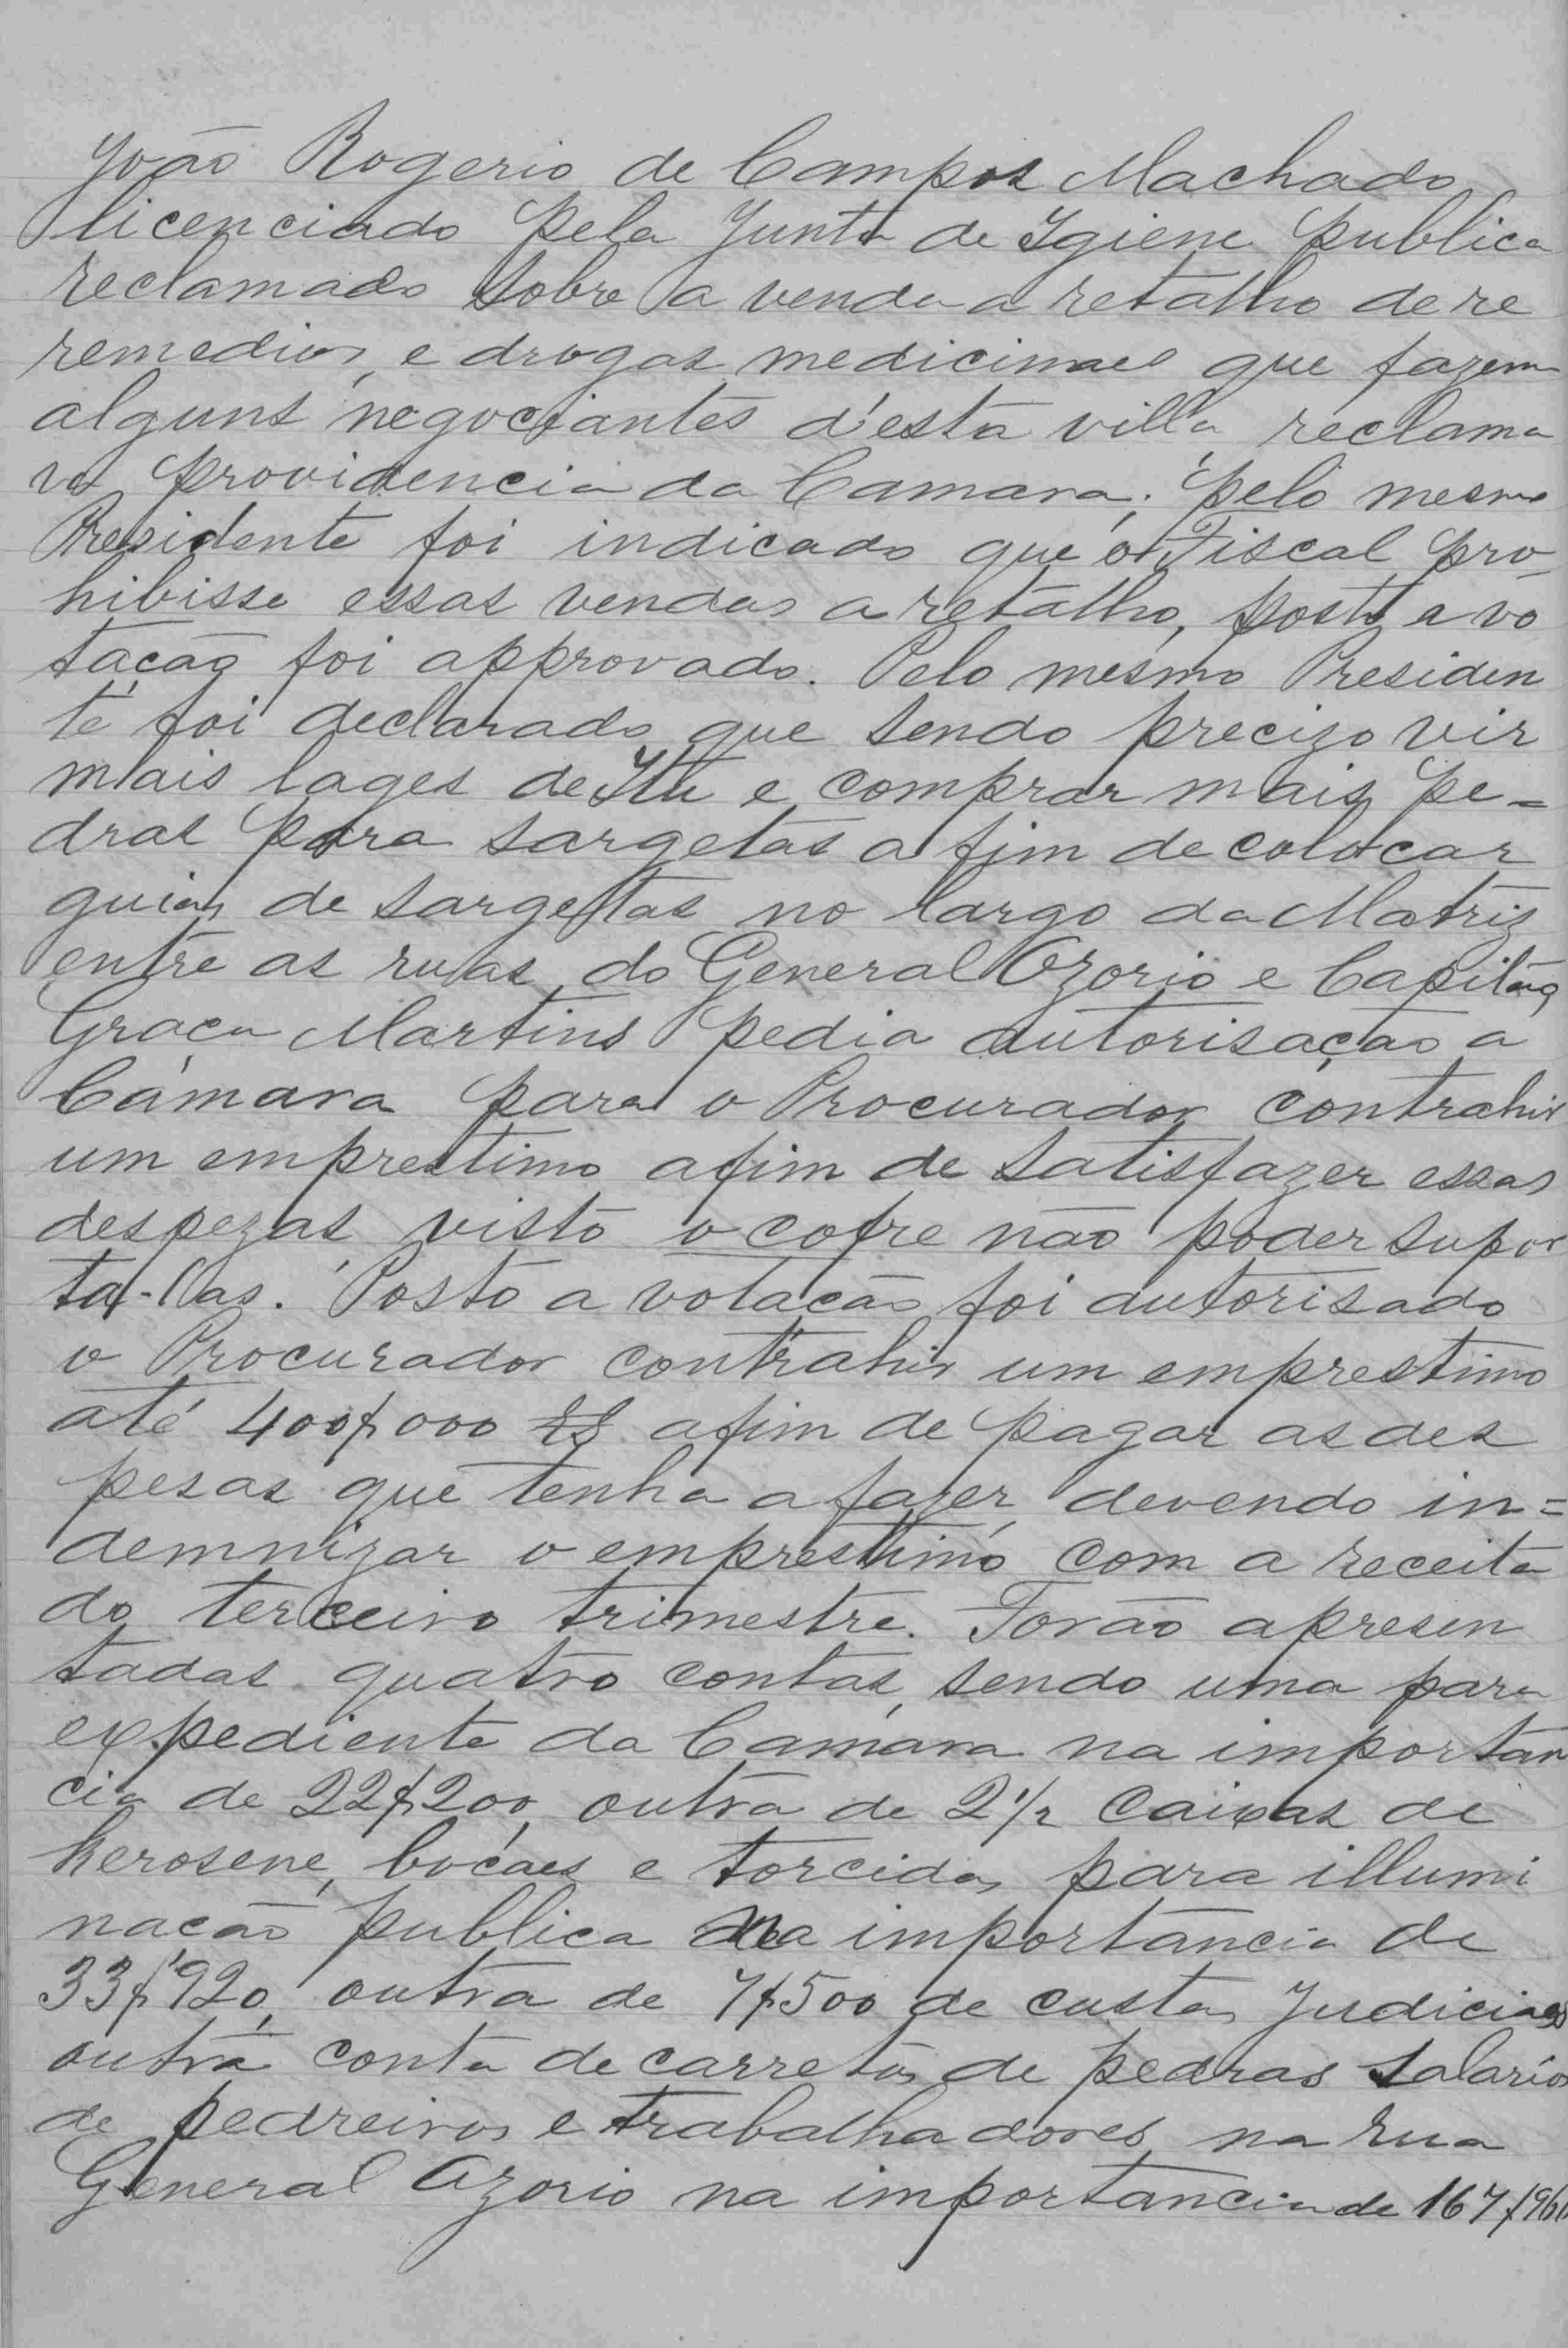 João Rogerio de Campos Machado
licenciado pela Junta de Igiene publica
reclamado sobre a venda a retalho de re
remedios, e drogas medicinaes que fazem
alguns negociantes d'esta villa, reclama
va providencia da Camara; pelo mesmo
Presidente foi indicado que o Fiscal pro-
hibisse essas vendas a retalho, posto a vo
tação foi approvado. Pelo mesmo Presiden
te foi declarado que sendo precizo vir
mais lages de Itu e comprar mais pe=
dras para sargetas a fim de colocar
guias de sargetas no largo da Matriz
entre as ruas do General Ozorio e Capitão
Graça Martins pedia autorisação a
Camara para o Procurador contrahir
um emprestimo afim de satisfazer essas
despezas visto o cofre não poder supor
ta-llas. Posto a votacão foi autorisado
o Procurador contrahir um emprestimo
até 400$000 rs afim de pagar as des
pesas que tenha a fazer, devendo in=
demnizar o emprestimo com a receita
do terceiro trimestre. Forão apresen
tadas quatro contas, sendo uma para
expediente da Camara na importan
cia de 22$200, outra de 2 1/2 caixas de
kerosene, bocaes e torcidas para illumi
nacão publica na importancia de
33$920, outra de 7$500 de custas Judiciaes
outra conta de carretos de pedras salarios
de pedreiros e trabalhadores na rua
General Ozorio na importancia de 167$960